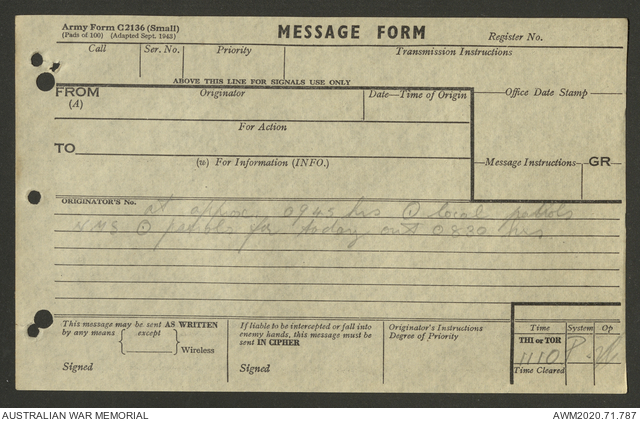 Army Form C2136 (Small)
(Pads of 100) (Adapted Sept. 1943)
MESSAGE FORM
Register No.
Call
Ser. No.
Priority
Transmission Instructions
ABOVE THIS LINE FOR SIGNALS USE ONLY
FROM
(A)
Originator
Date—Time of Origin
Office Date Stamp
For Action
TO
(w) For Information (INFO.)
Message Instructions
GR
ORIGINATOR'S No.
at approx 0945 hrs ⊙ local patrols
⊙ patrols for today out 0830 hrs
This message may be sent AS WRITTEN
by any means
except
Wireless
Signed
If liable to be intercepted or fall into
enemy hands, this message must be
sent IN CIPHER
Signed
Originator's Instructions
Degree of Priority
Time
System
Op
THI or TOR
1110
Time Cleared
AUSTRALIAN WAR MEMORIAL
AWM2020.71.787